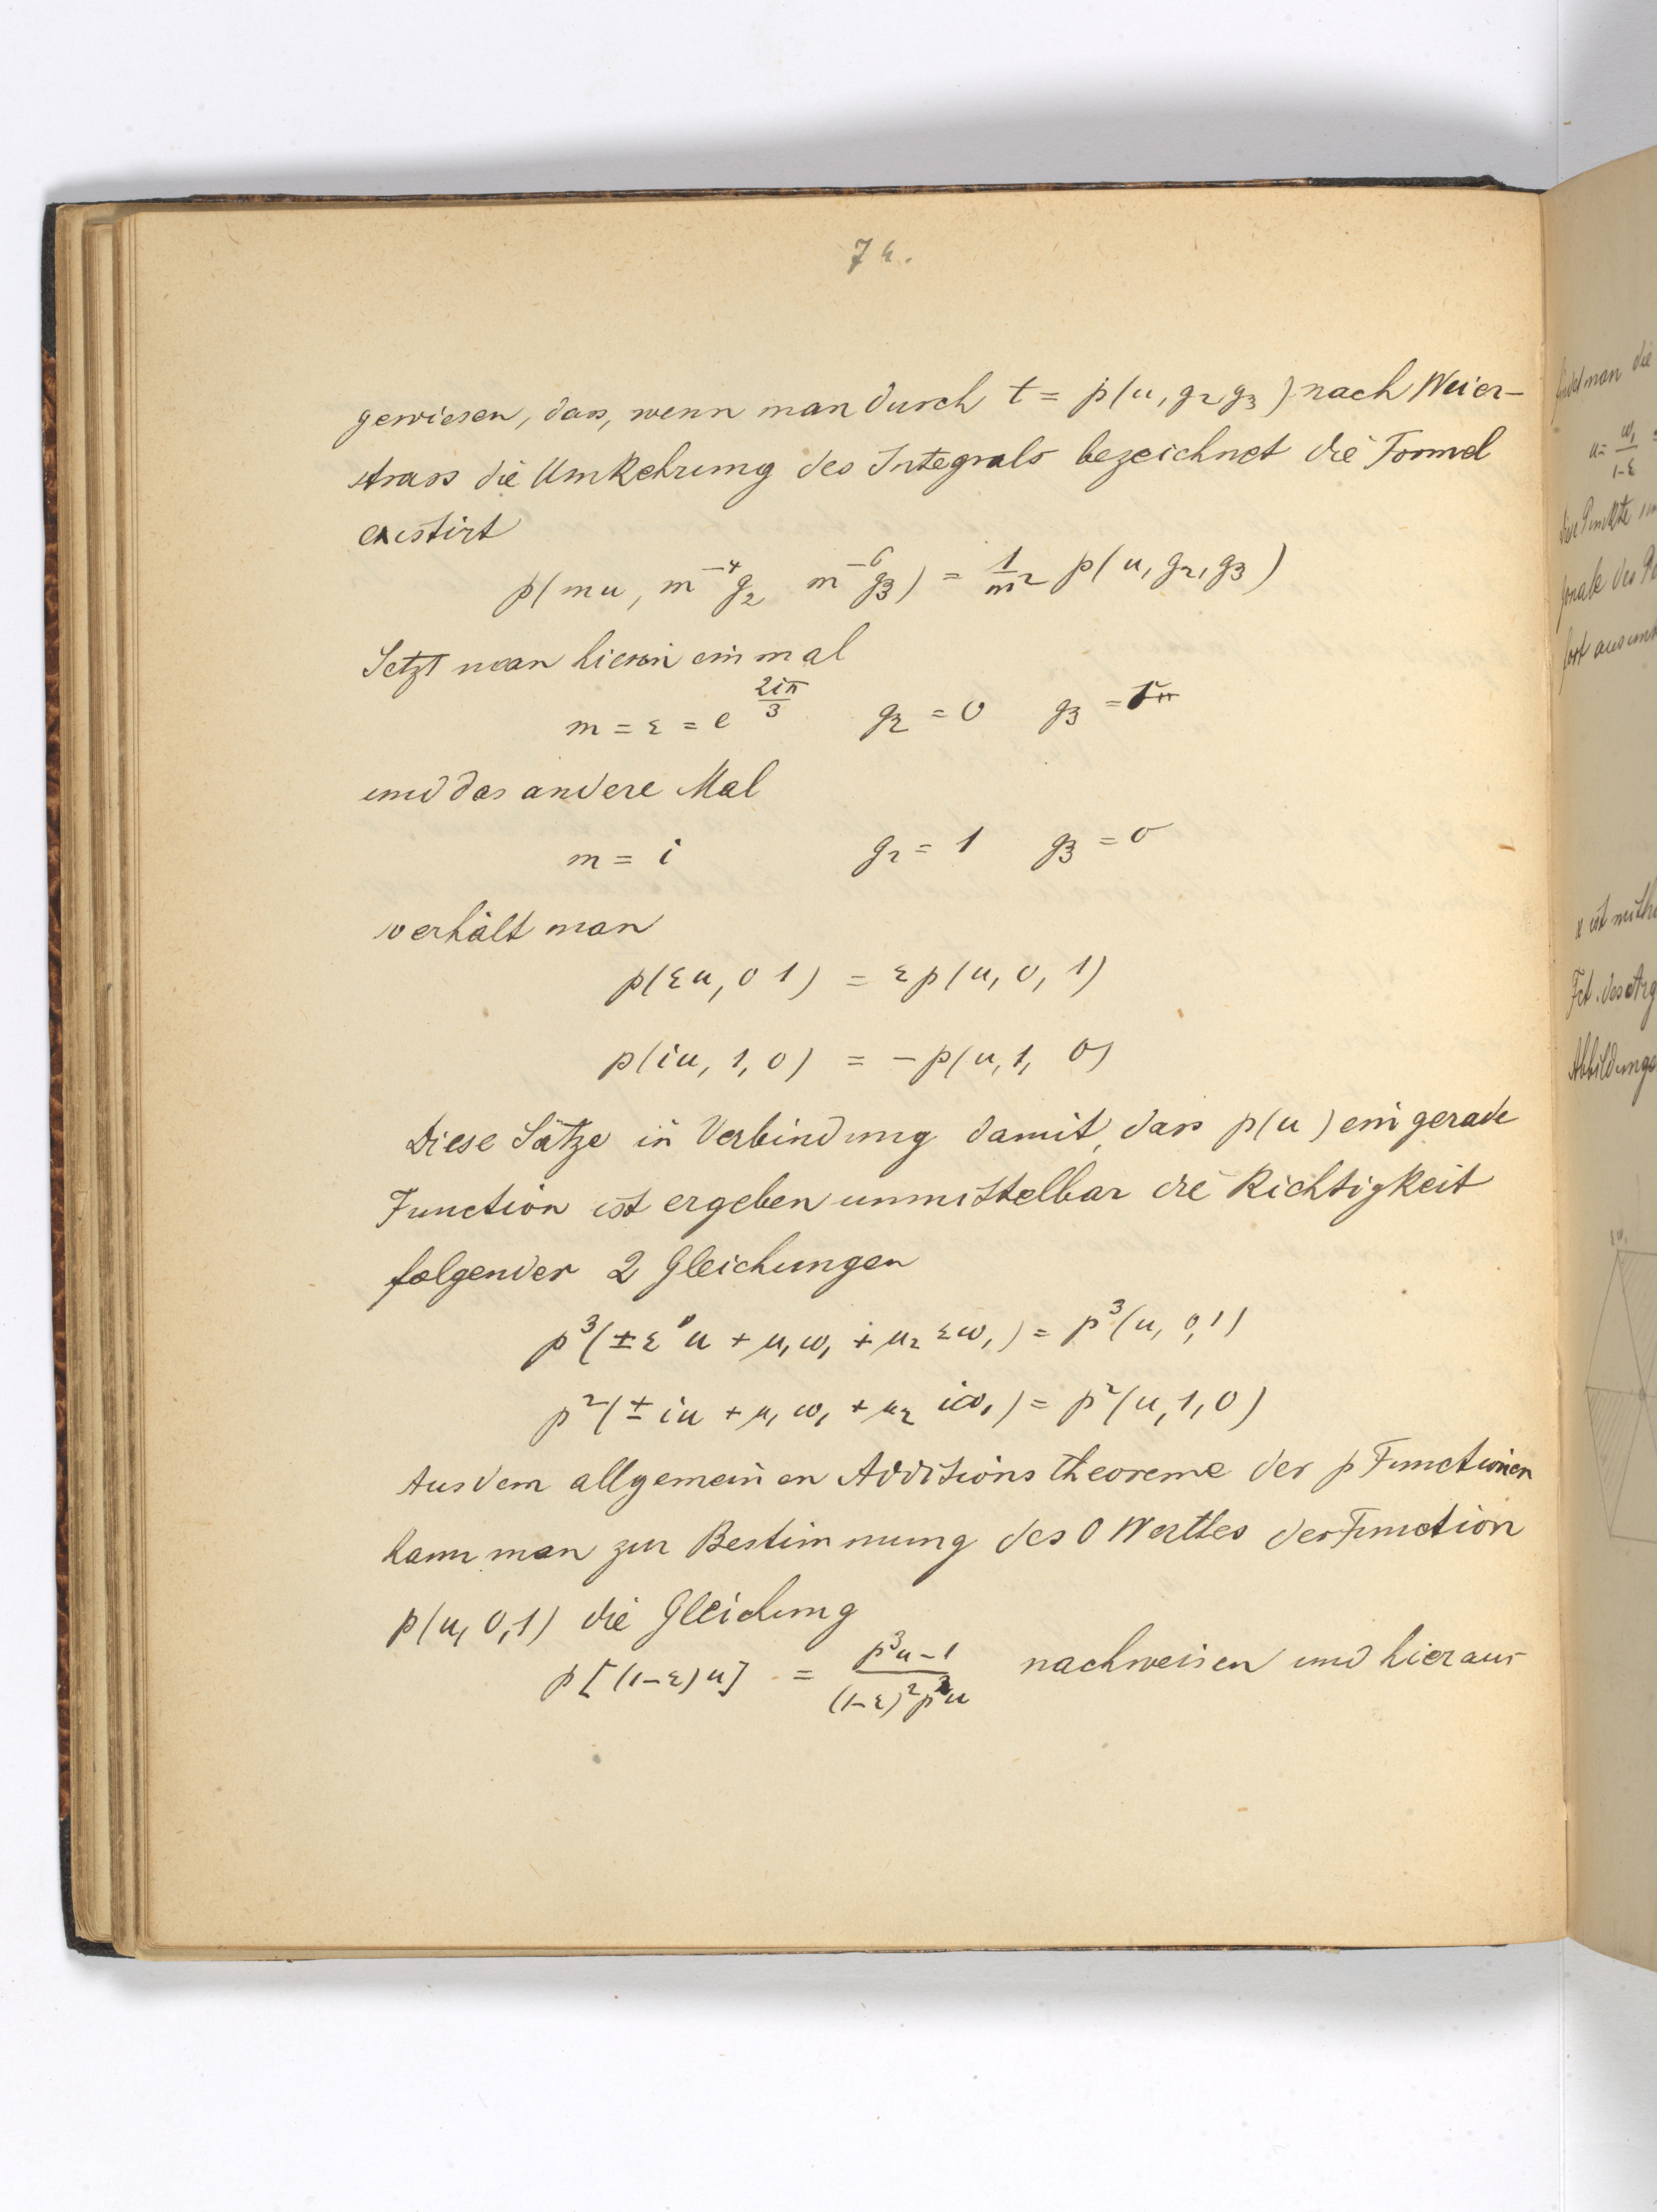 74.
gewiesen, dass, wenn man durch t = p(u, g₂ g₃) nach Weier-
strass die Umkehrung des Integrals bezeichnet die Formel
existirt
p(mu, m⁻⁴g₂ m⁻⁶g₃) = 1/m² p(u, g₂, g₃)
Setzt man hierin ein mal
m = ε = e^(2iπ/3) g₂ = 0 g₃ = 1
und das andere Mal
m = i g₂ = 1 g₃ = 0
so erhält man
p(εu, 0 1) = εp(u, 0, 1)
p(iu, 1, 0) = −p(u, 1, 0)
Diese Sätze in Verbindung damit, dass p(u) ein gerade
Function ist ergeben unmittelbar die Richtigkeit
folgender 2 Gleichungen
p³(±ε u + μ₁ω₁ + μ₂ εω₁) = p³(u, 0,1)
p²(± iu + μ₁ω₁ + μ₂ iω₁) = p²(u, 1, 0)
Aus dem allgemeinen Additions theoreme der p Functionen
kann man zur Bestimmung des 0 Werthes der Function
p(u, 0,1) die Gleichung
p[(1−ε)u] = (p³u−1)/((1−ε)²p²u) nachweisen und hieraus
findet man die
u = ω₁/(1−ε) =
die Punkte
x ist mith
Fct. des Arg
Abbildungs